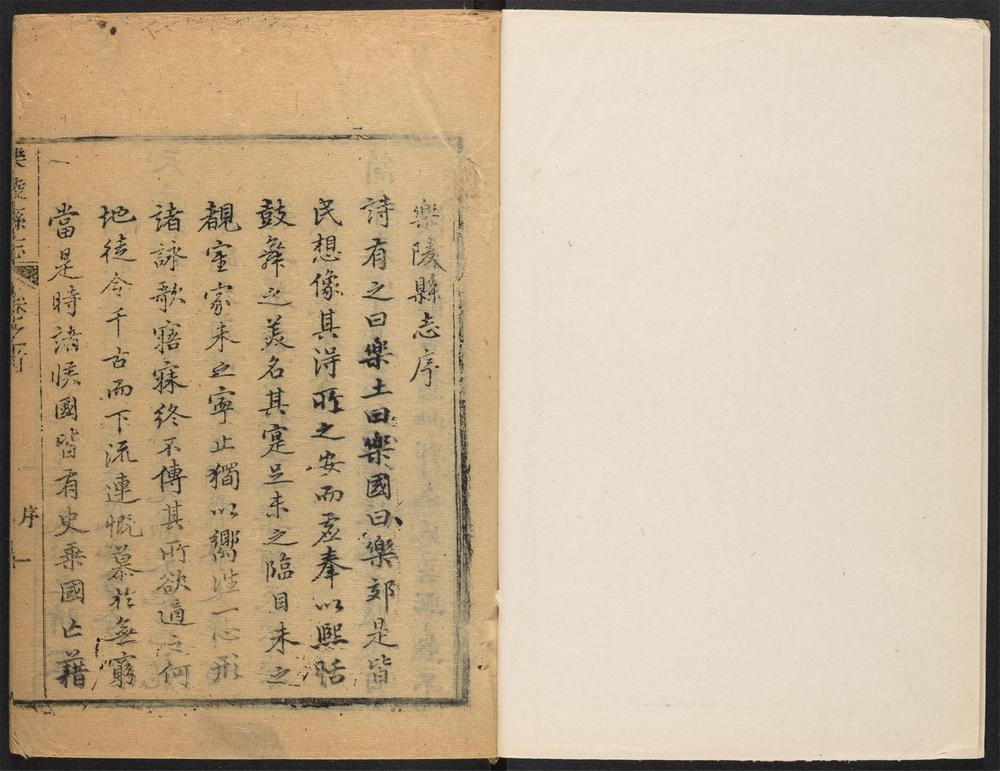 樂陵縣志序
詩有之曰樂土曰樂國曰樂郊是皆
民想像其得所之安而虛奉以熙恬
鼓舞之美名其寔足未之臨目未之
覩室家未之寧止獨以嚮往一心形
諸詠歌寤寐終不傳其所欲適之何
地徒令千古而下流連慨慕於無窮
當是時諸侯國皆有史乘國亡藉
樂陵縣志 序 一